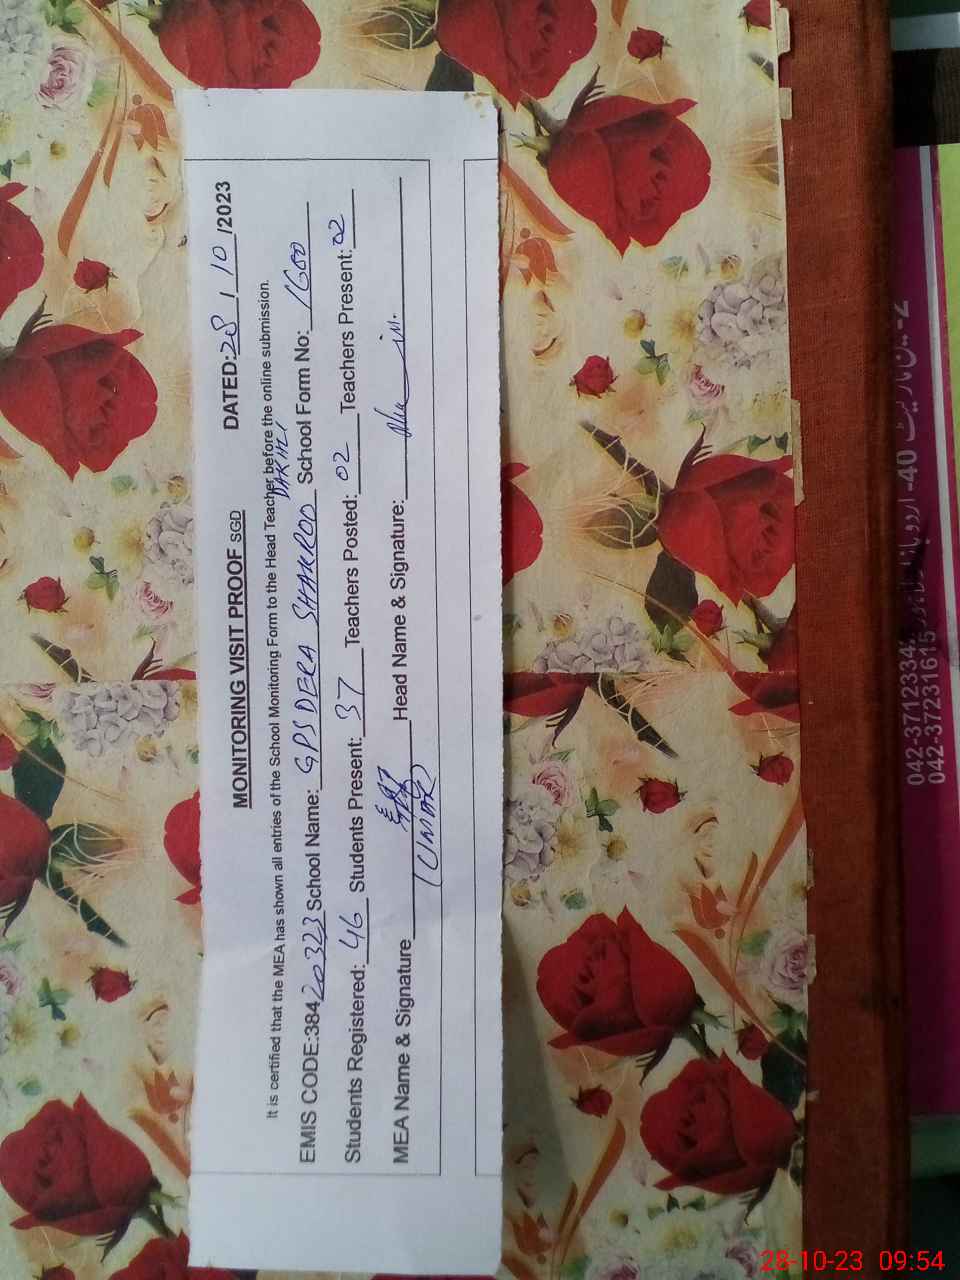 MONITORING VISIT PROOF SGD DATED: 28 / 10 /2023
It is certified that the MEA has shown all entries of the School Monitoring Form to the Head Teacher before the online submission.
EMIS CODE:38420323 School Name: GPS DERA SHAHROD DAKHLI School Form No: 1600
Students Registered: 46 Students Present: 37 Teachers Posted: 02 Teachers Present: 02
MEA Name & Signature Head Name & Signature:
(UMAR)
042-37231615
28-10-23 09:54